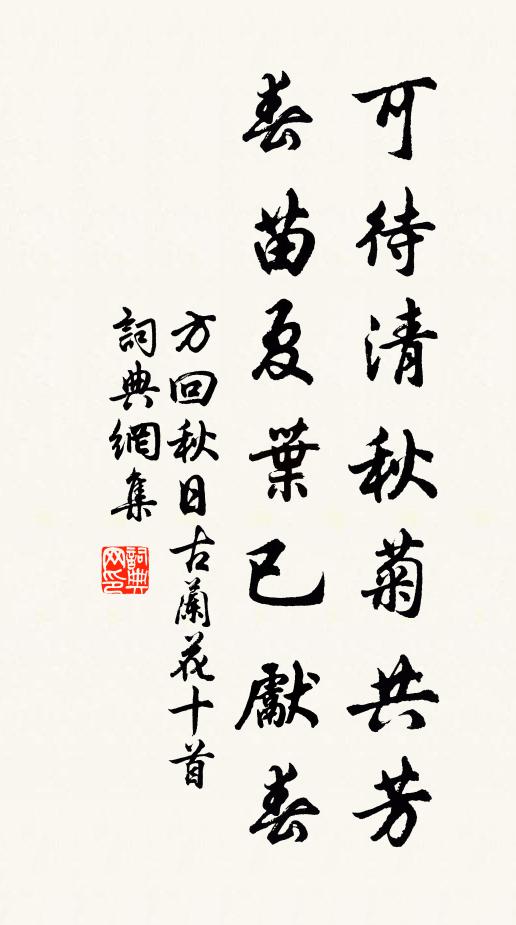 可待清秋菊共芳
春苗夏葉已獻春
方回秋日古蘭花十首
詞典網集
詞典网印